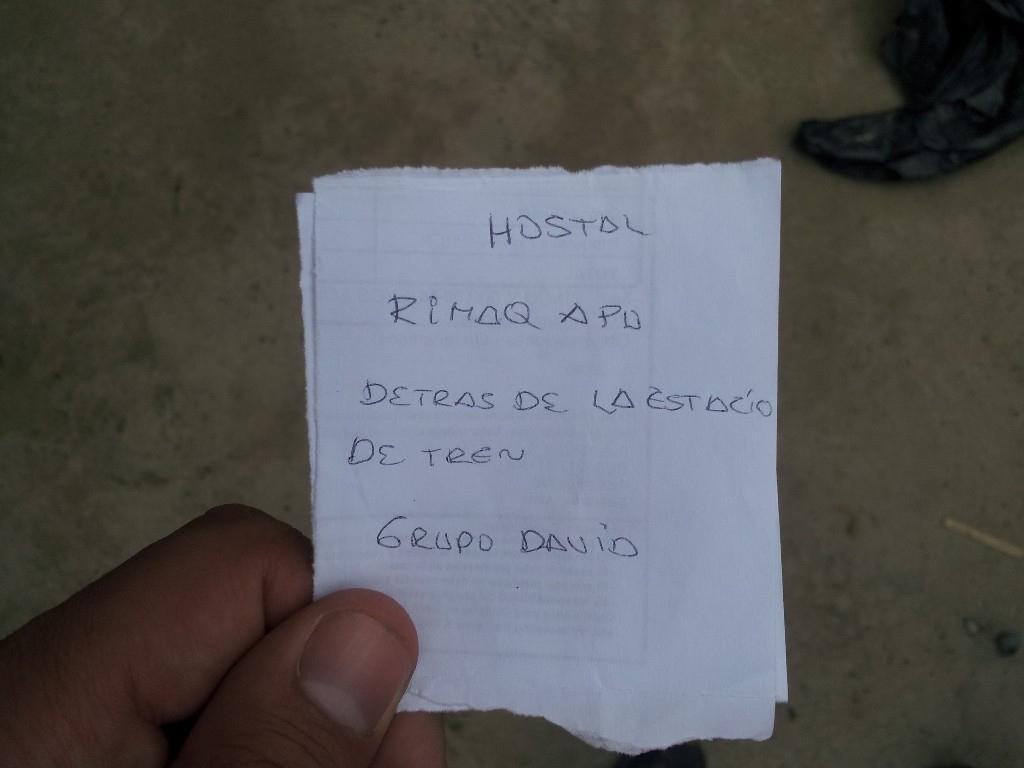 HOSTAL
RIMAQ APU
DETRAS DE LA ESTACIO
DE TREN
GRUPO DAVID